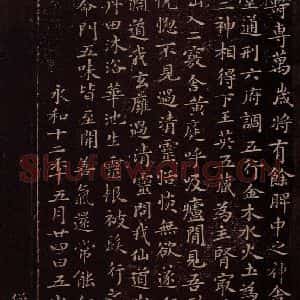 時專萬歲將有餘脾中之神舍
堂通利六府調五行金木水火土爲
二神相得下玉英五藏爲主腎最
出入二竅舍黃庭呼吸廬間見吾
恍惚不見過清靈恬惔無欲遂得
淵道我玄雍過清靈問我仙道
丹田沐浴華池生靈根被髮行之
命門五味皆至開善氣還常能
永和十二年五月廿四日五山
Shufawang.CN